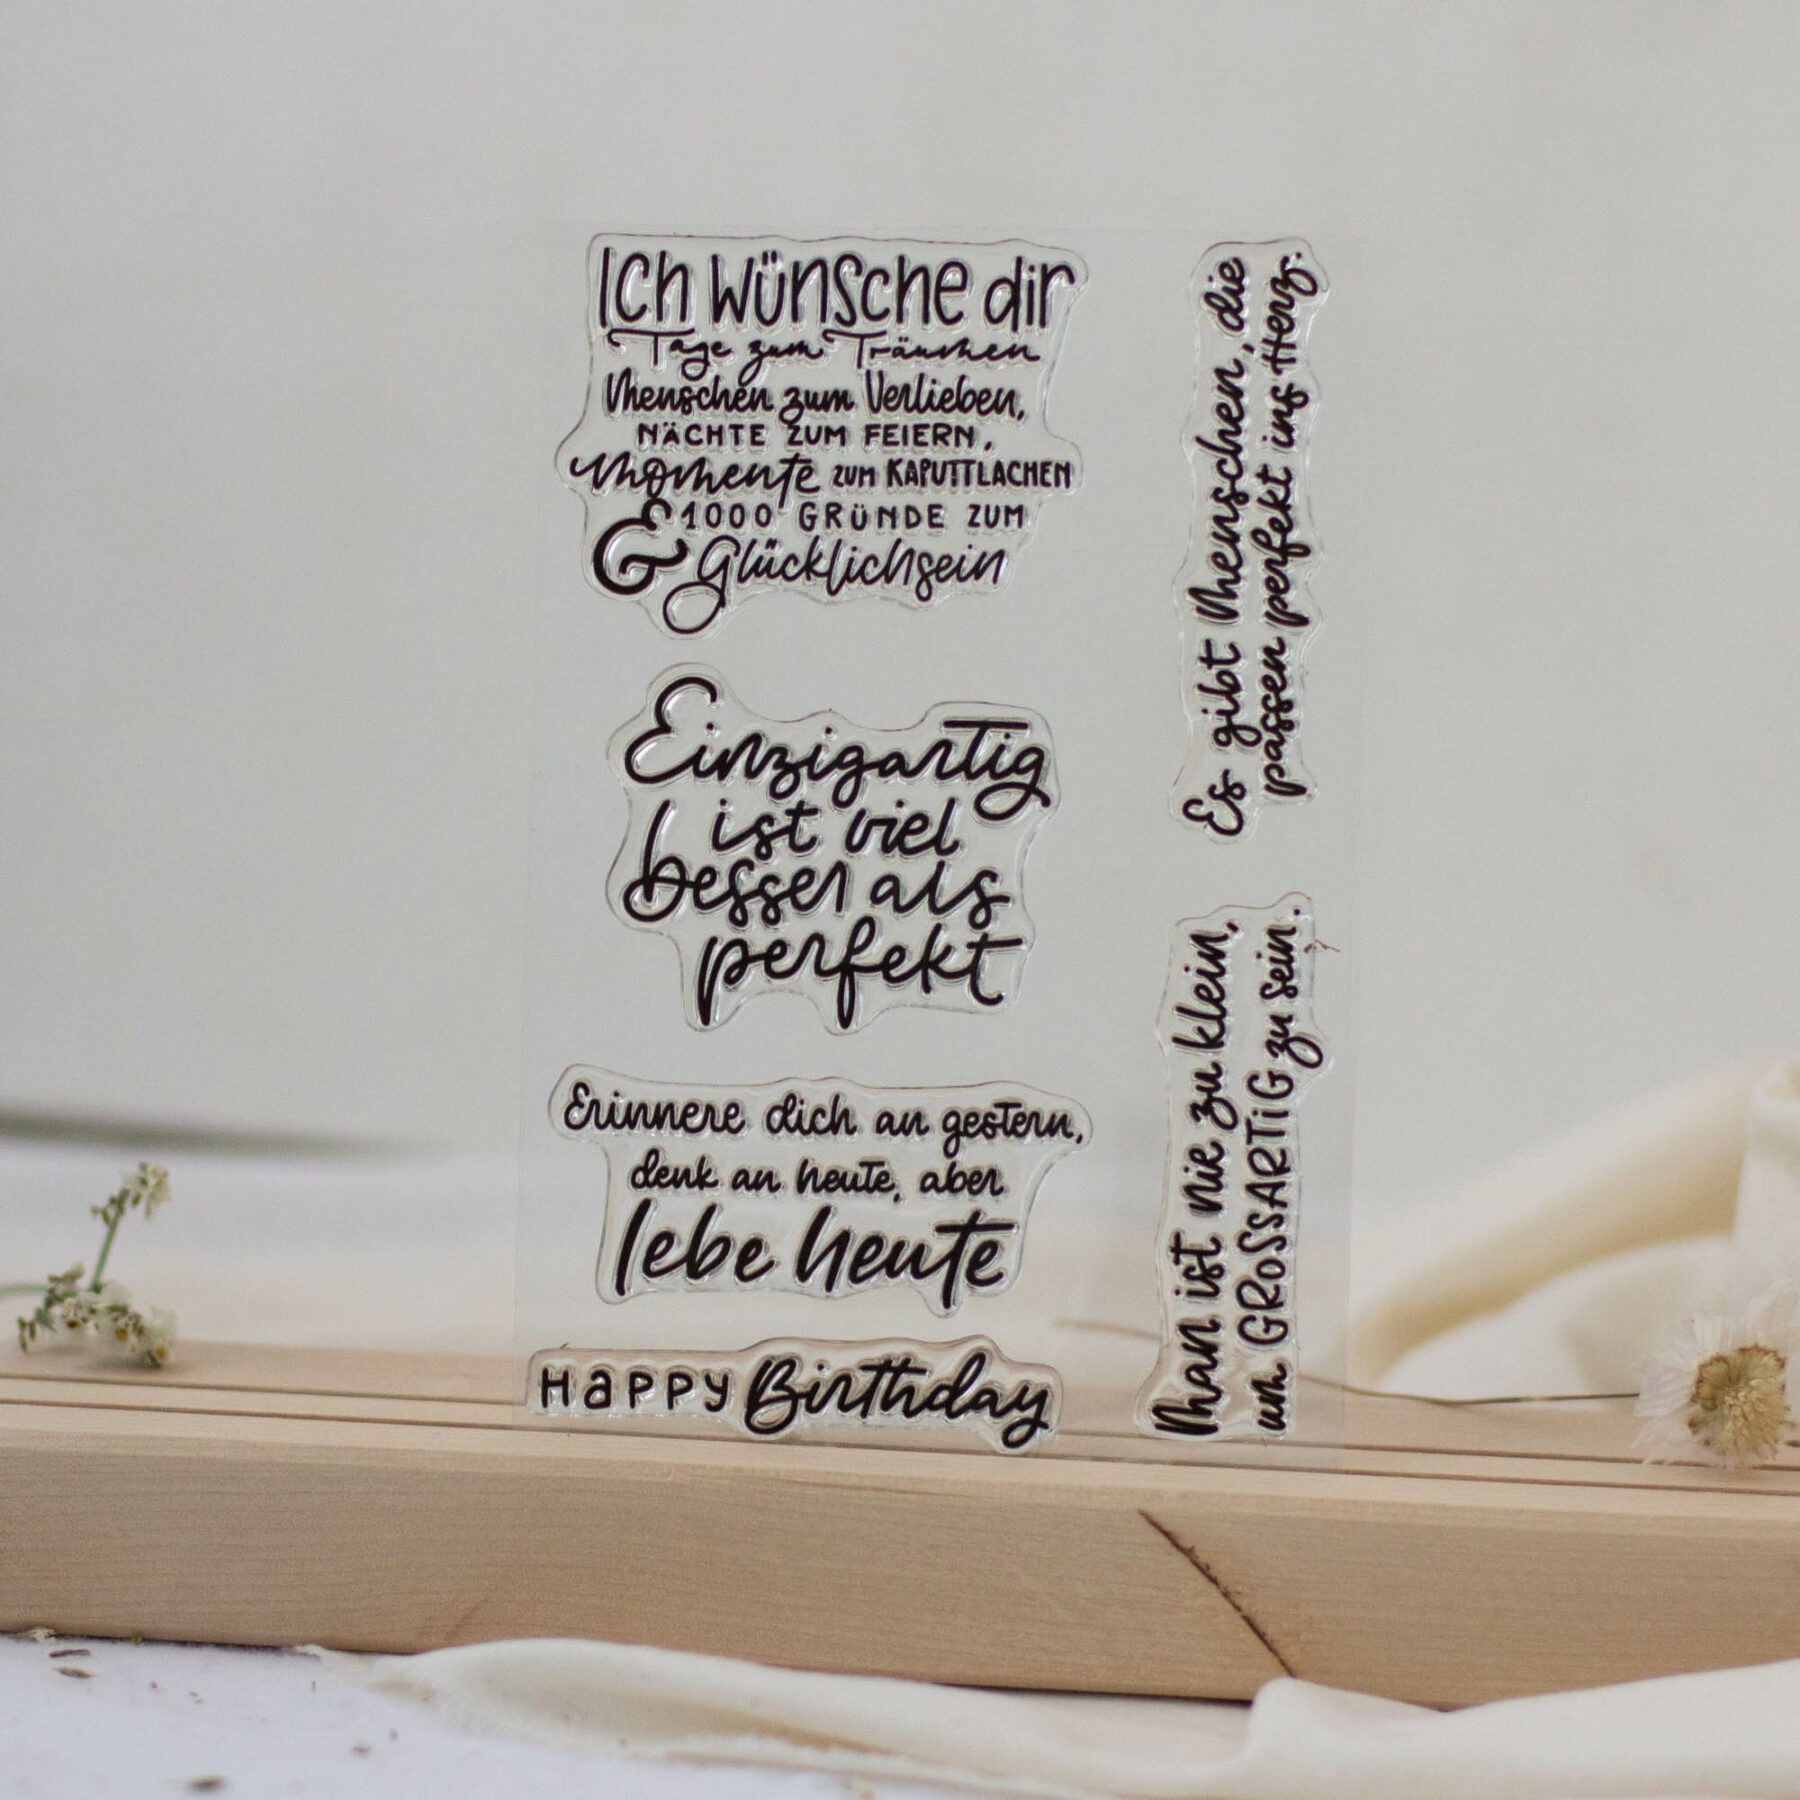 Ich wünsche dir
Tage zum Träumen
Menschen zum Verlieben,
NÄCHTE ZUM FEIERN,
Momente ZUM KAPUTTLACHEN
& 1000 GRÜNDE ZUM
Glücklichsein
Einzigartig
ist viel
besser als
perfekt
Erinnere dich an gestern,
denk an heute, aber
lebe heute
HAPPY Birthday
Es gibt Menschen, die
passen perfekt ins Herz.
Man ist nie zu klein,
um GROSSARTiG zu sein.